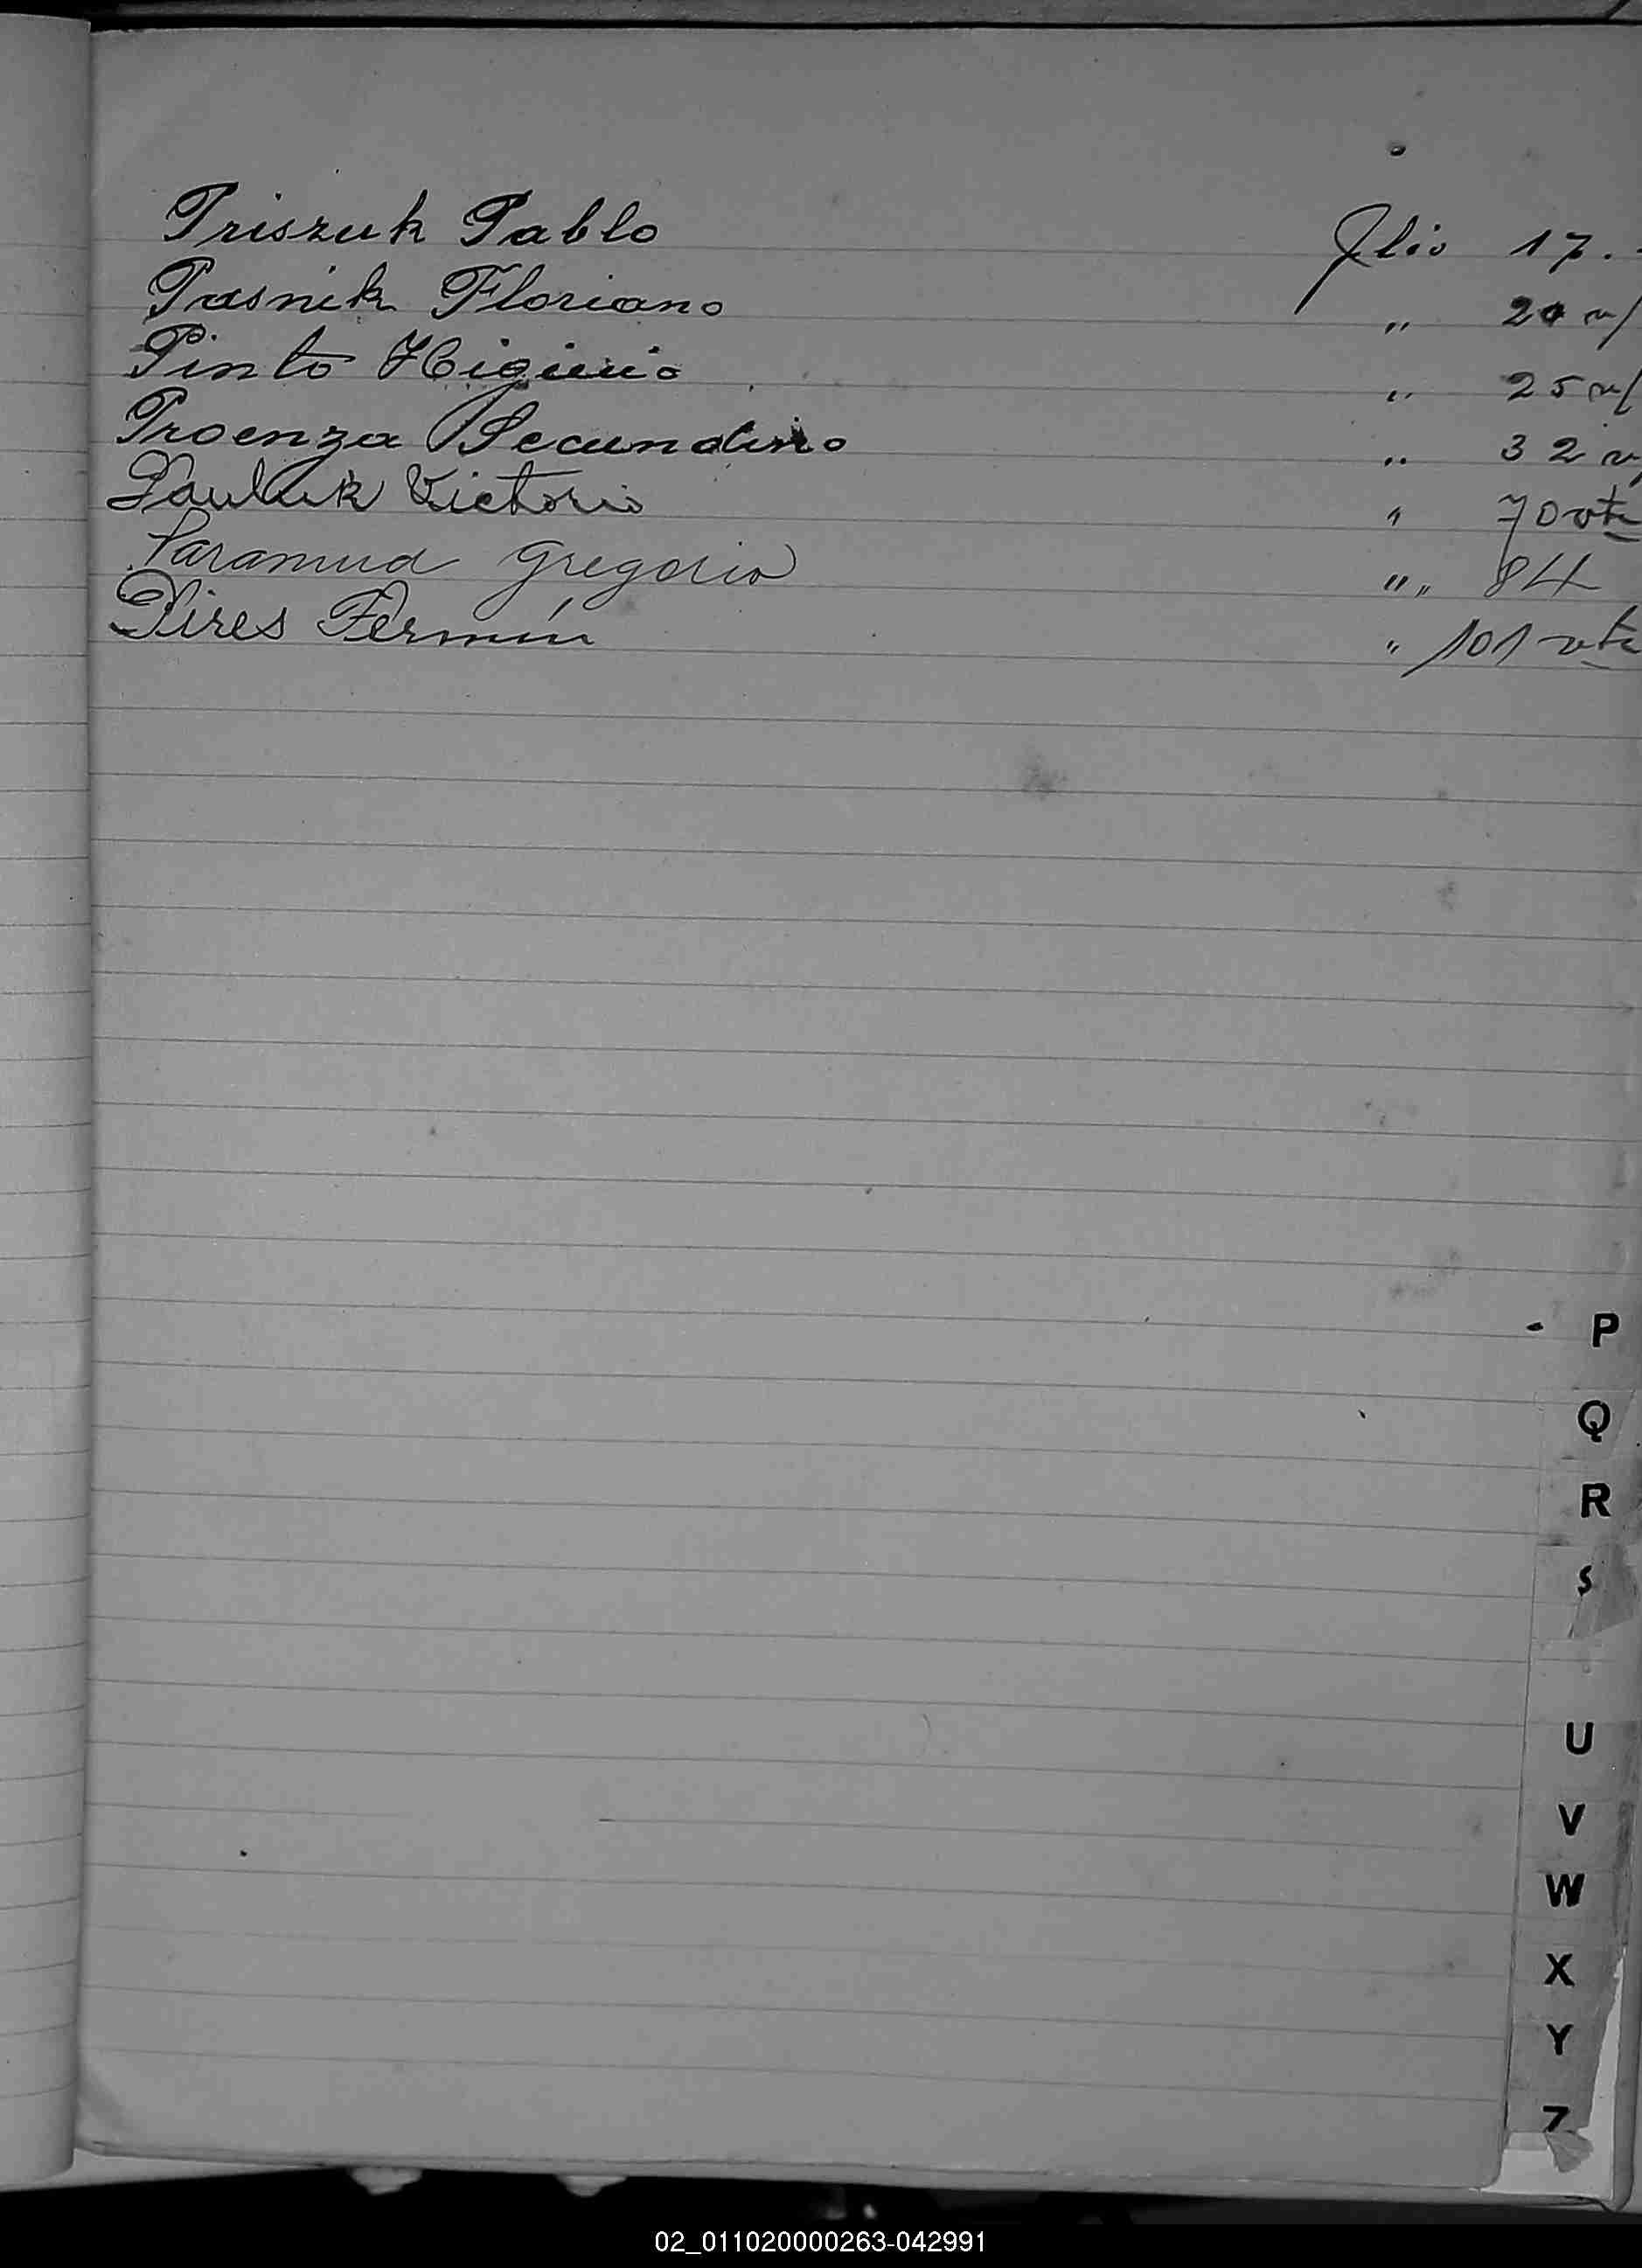 Priszuk Pablo Flio 17.
Pasnik Floriano " 20 v/
Pinto Higinio " 25 v/
Proenza Secundino " 32 v
Pauluk Victorio " 70 vta
Paramud Gregorio " " 84
Pires Fermín " 101 vta
P
Q
R
S
U
V
W
X
Y
Z
02_011020000263-042991